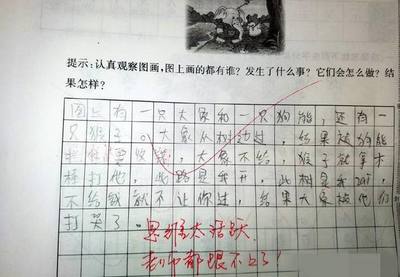 提示:认真观察图画,图上画的都有谁?发生了什么事?它们会怎么做?结
果怎样?
图上有一只大象和一只狗熊,还有一
只猴子。大象从树边过,结果被狗熊
拦住要收钱,大象不给,猴子就拿木
棒打他,此路是我开,此树是我栽,
不给钱就不让你过,结果大象被他们
打哭了。
思维太活跃,
老师都跟不上了!